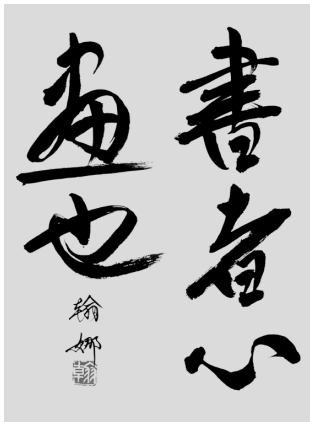 書者心
畫也
翰娜
翰